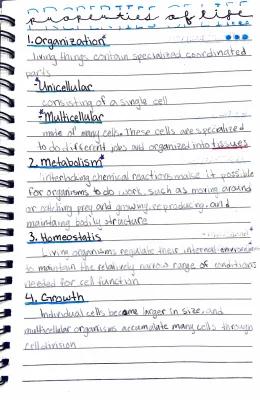 properties of life
1. Organization
living things contain specialized coordinated
parts
Unicellular
consisting of a single cell
Multicellular
made of many cells. These cells are specialized
to do different jobs and organized into tissues
2. Metabolism
interlocking chemical reactions make it possible
for organisms to do work, such as moving around
or catching prey and growing, reproducing, and
maintaing bodily structure
3. Homeostatis
Living organisms regulate their internal environment
to maintain the relatively narrow range of conditions
needed for cell function
4. Growth
Individual cells become larger in size, and
multicellular organisms accumulate many cells through
cell division